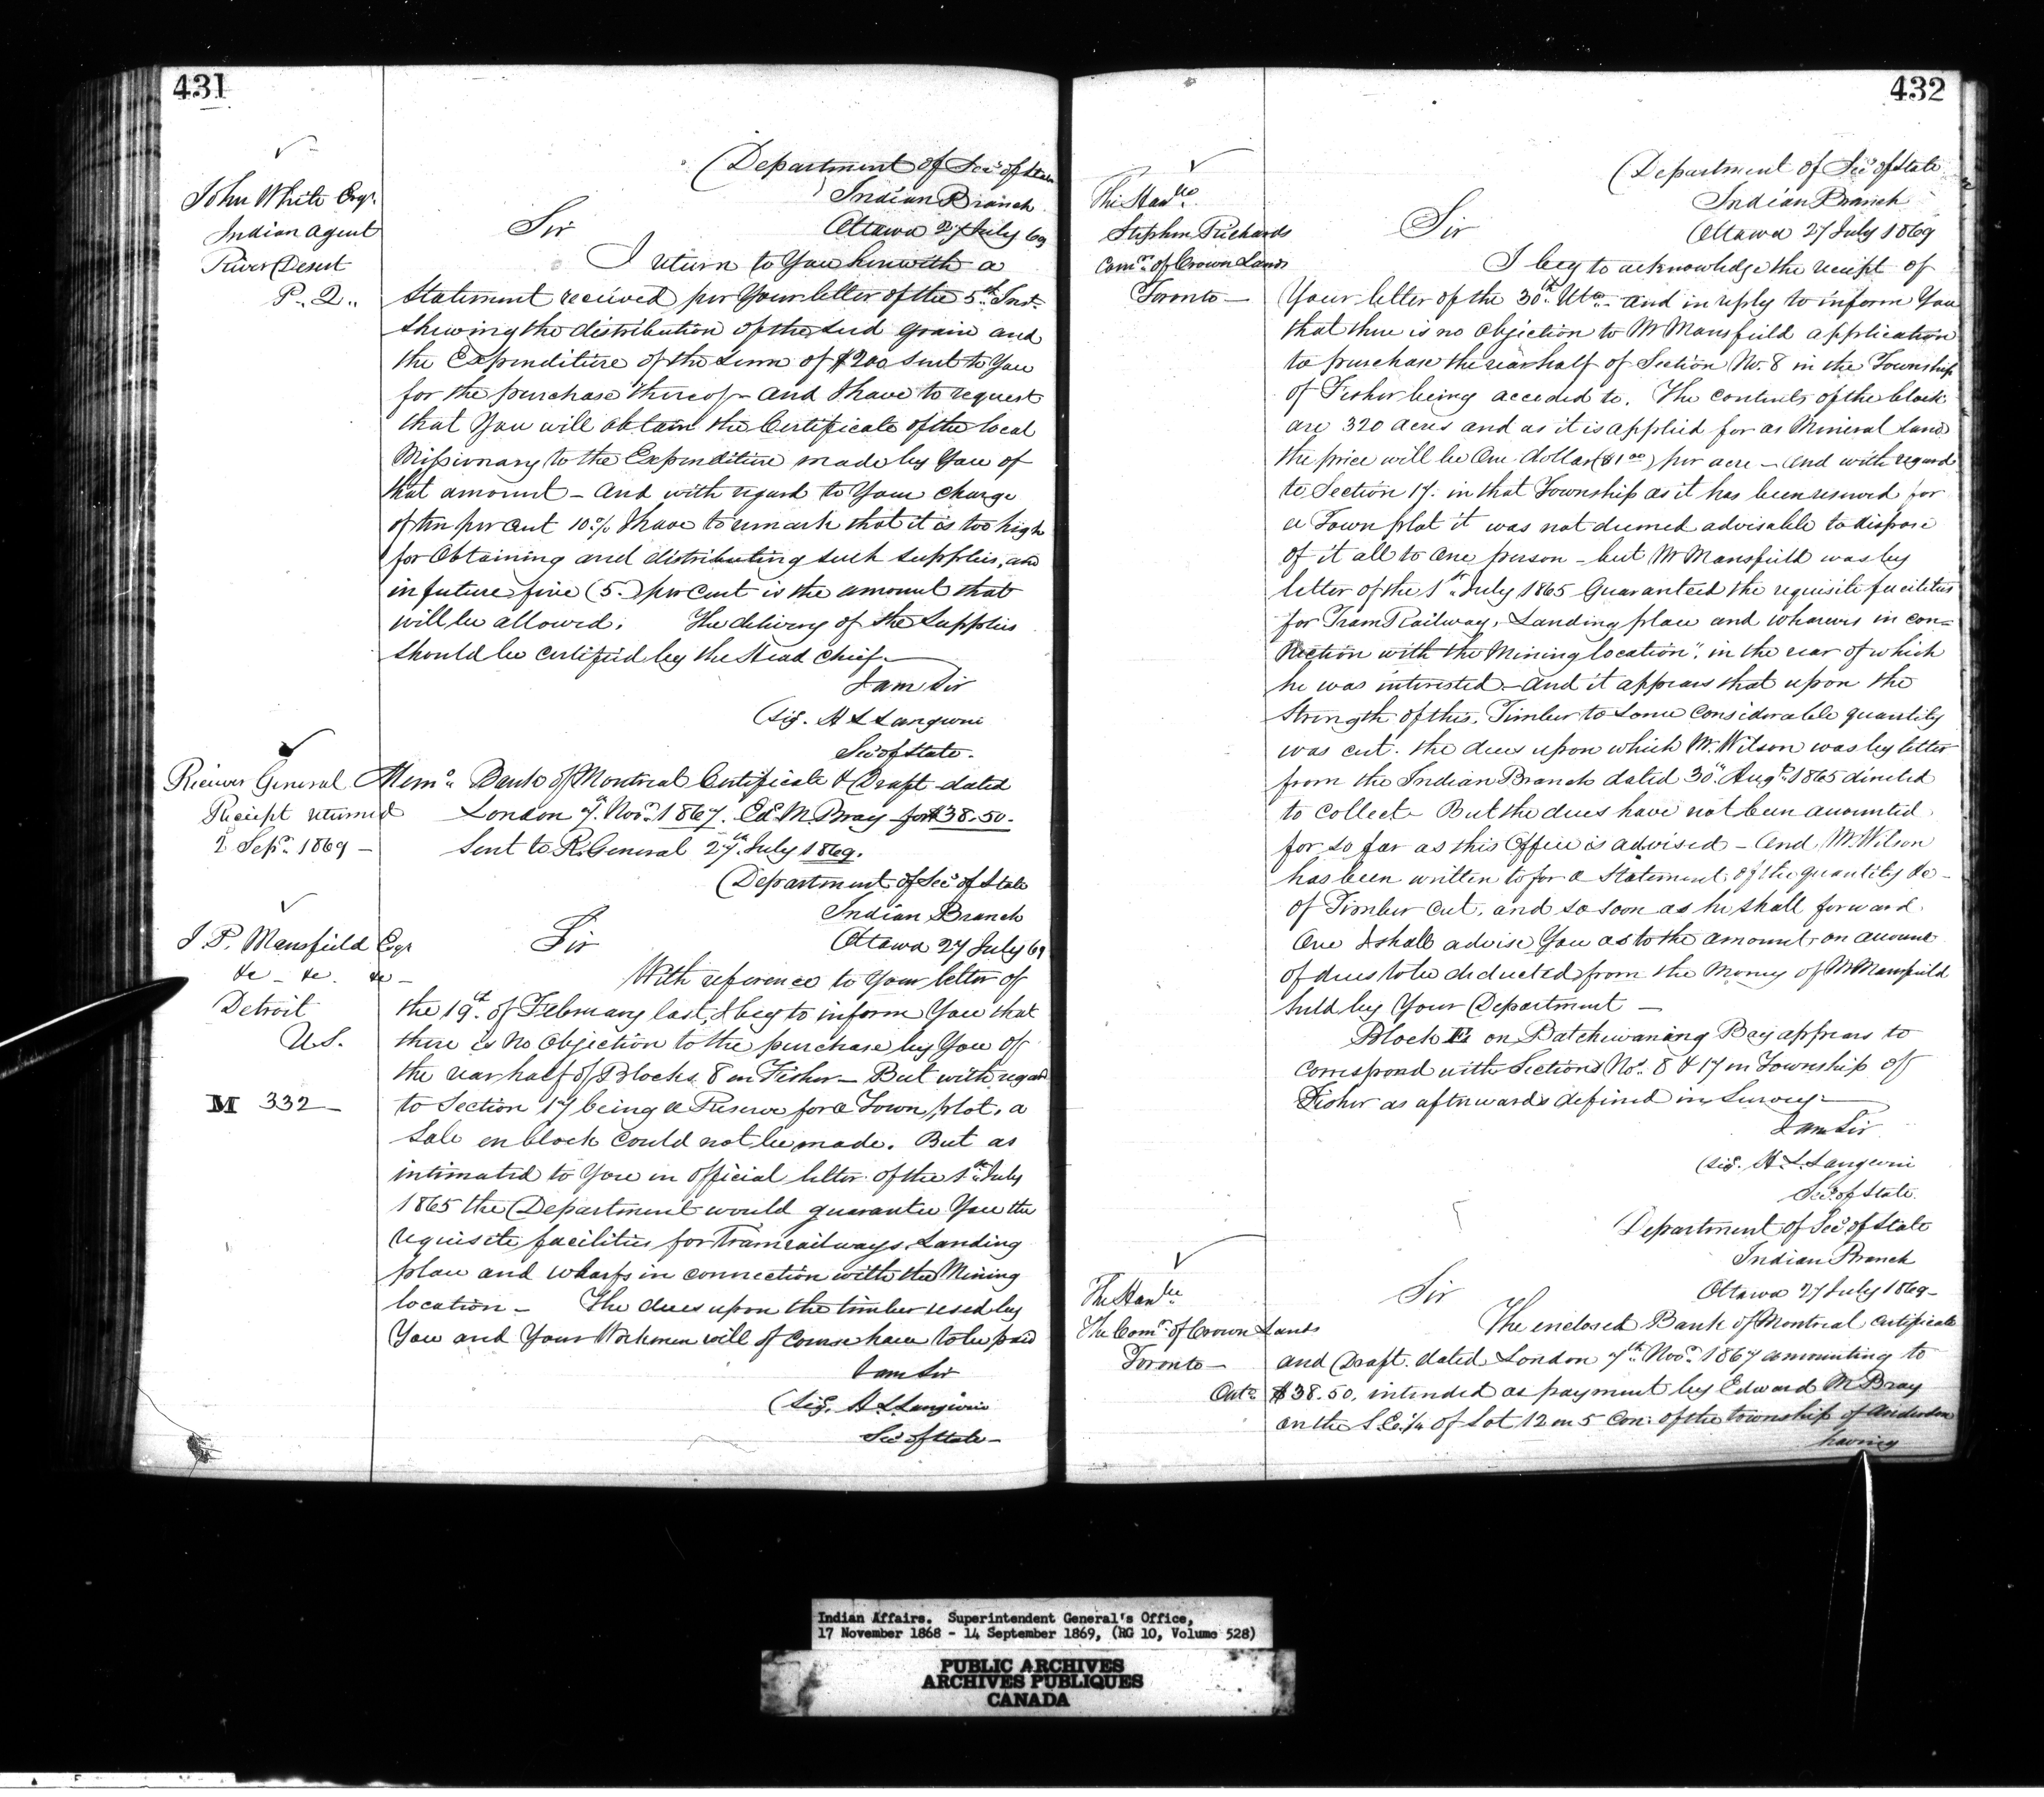 431
John White Esqr.
Indian Agent
River Desert
P. Q.
Department of Sec. of State
Indian Branch
Ottawa 27 July 69
Sir
I return to You herewith a
Statement received per Your letter of the 5th Inst.
shewing the distribution of the seed grain and
the Expenditure of the sum of $200 sent to You
for the purchase thereof - and I have to request
that You will obtain the Certificate of the local
Missionary to the Expenditure made by You of
that amount - and with regard to Your charge
of ten per cent 10.% I have to remark that it is too high
for Obtaining and distributing such supplies, and
in future five (5.) per cent is the amount that
will be allowed. The delivery of the Supplies
should be certified by the Head Chief.
I am Sir
(Sig. H L Langevin
Sec. of State.
Receiver General
Receipt returned
2 Sepr. 1869 -
Memo. Bank of Montreal Certificate & Draft dated
London 7th Novr. 1867. Ed. M. Bray for $38.50.
Sent to R. General 27th July 1869.
Department of Sec. of State
Indian Branch
Ottawa 27 July 69
J. P. Mansfield Esqr
&c - &c. &c -
Detroit
U.S.
M 332 -
Sir
With reference to Your letter of
the 19th of February last, I beg to inform You that
there is No Objection to the purchase by You of
the rear half of Blocks 8 in Fisher - But with regard
to Section 17 being a Reserve for a Town plot, a
Sale en block could not be made. But as
intimated to You in Official letter of the 1st July
1865 the Department would guarantee You the
requisite facilities for Tramrailways, Landing
place and wharfs in connection with the Mining
location - The dues upon the timber used by
You and Your Workmen will of course have to be paid
I am Sir
(Sig. H L Langevin
Sec. of State -
432
The Honble.
Stephen Richards
Comr. of Crown Lands
Toronto -
Department of Sec. of State
Indian Branch
Ottawa 27 July 1869
Sir
I beg to acknowledge the receipt of
Your letter of the 30th Ulto. - and in reply to inform You
that there is no Objection to Mr Mansfield application
to purchase the rear half of Section No. 8 in the Township
of Fisher being acceded to. The contents of the block
are 320 acres and as it is applied for as Mineral Land
the price will be One dollar ($1 00) per acre - and with regard
to Section 17. in that Township as it has been reserved for
a Town plot it was not deemed advisable to dispose
of it all to One person - but Mr Mansfield was by
letter of the 1st July 1865 Guaranteed the requisite facilities
for Tram Railway, Landing place and wharves in con=
nection with the Mining location", in the rear of which
he was interested - and it appears that upon the
Strength of this, Timber to some Considerable quantity
was cut. the dues upon which Mr. Wilson was by letter
from the Indian Branch dated 30th Augt. 1865 directed
to collect - But the dues have not been accounted
for so far as this Office is advised - and Mr. Wilson
has been written to for a Statement of the quantity &c -
of Timber cut, and so soon as he shall forward
One I shall advise You as to the amount on account
of dues to be deducted from the Money of Mr Mansfield
held by Your Department -
Block on Batchewanang Bay appears to
correspond with Sections No. 8 & 17 in Township of
Fisher as afterwards defined in Survey -
I am Sir
(Sig. H. L. Langevin
Sec. of State.
Department of Sec. of State
Indian Branch
Ottawa 27 July 1869 -
The Honble
The Comr. of Crown Lands
Toronto -
Onto.
Sir
The enclosed Bank of Montreal Certificate
and Draft. dated London 7th Novr. 1867 amounting to
$38.50, intended as payment by Edward M Bray
on the S.E. 1/4 of Lot 12 in 5 Con: of the township of Anderdon
having
Indian Affairs. Superintendent General's Office,
17 November 1868 - 14 September 1869, (RG 10, Volume 528)
PUBLIC ARCHIVES
ARCHIVES PUBLIQUES
CANADA